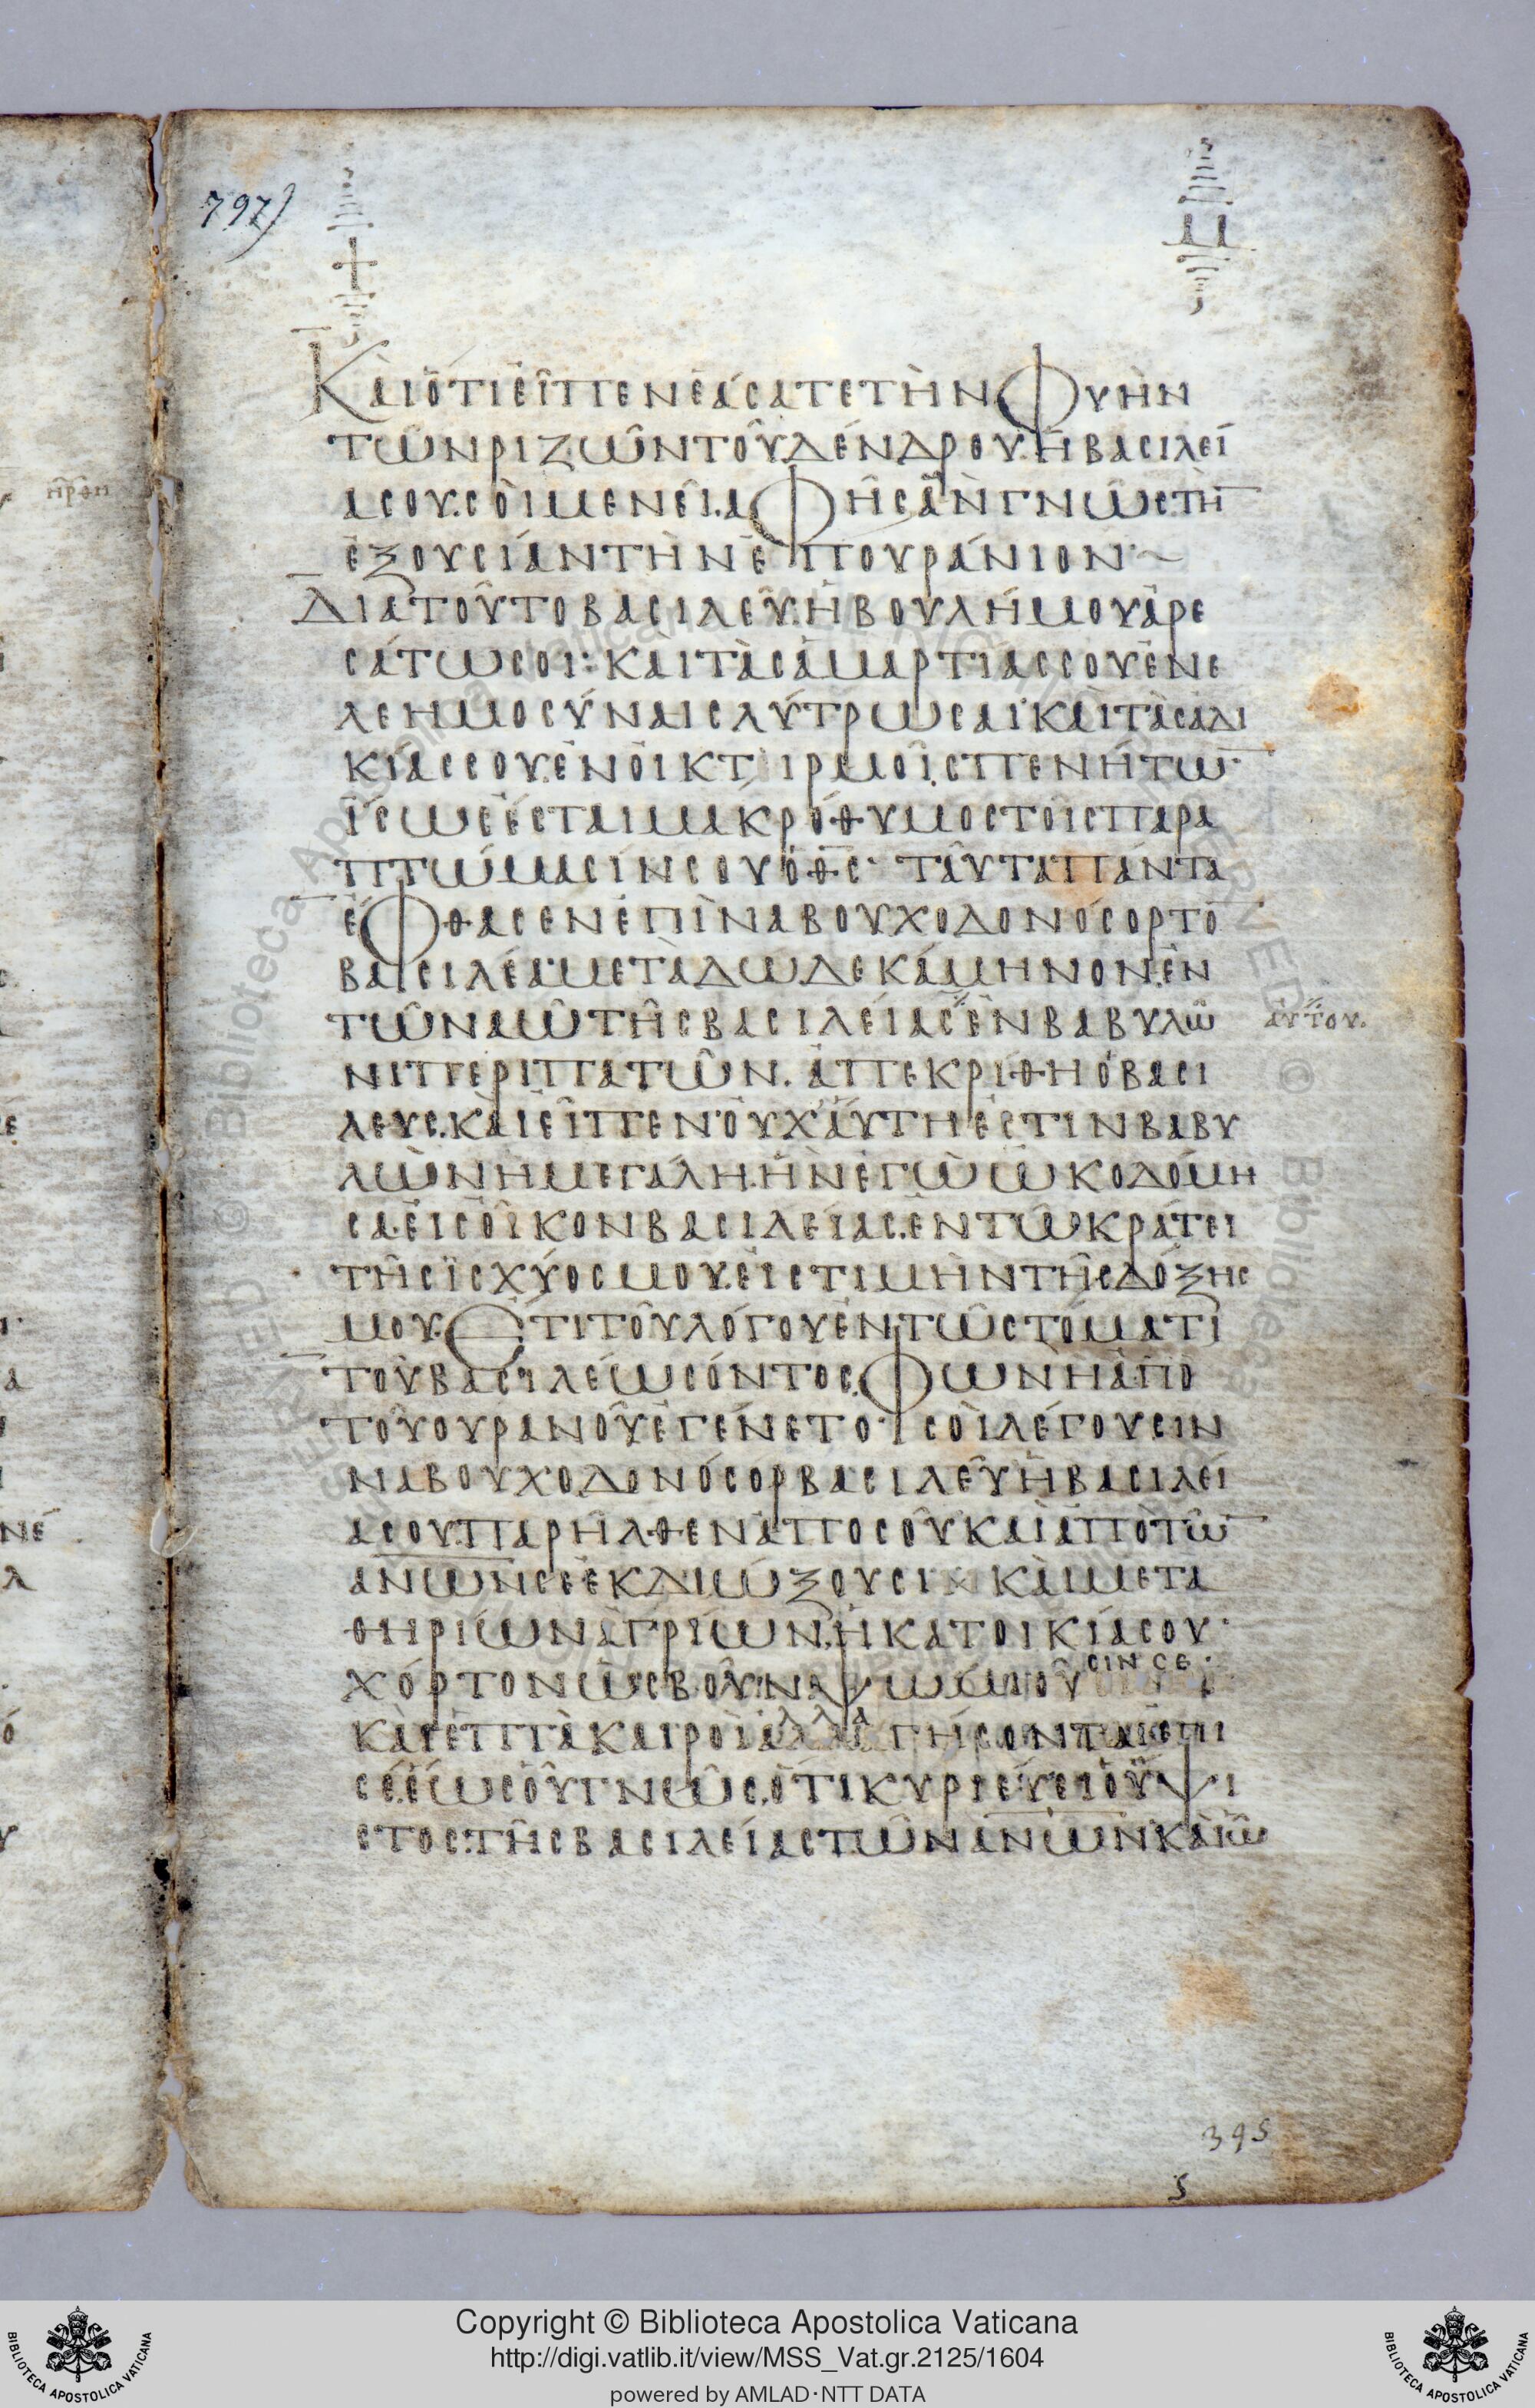 797)
Καὶ ὅτι εἶπεν ἐάσατε τὴν φυὴν
τῶν ριζῶν τοῦ δένδρου. ἡ βασιλεί
α σου. σοὶ μενεῖ. ἀφ ἧς ἂν γνῶς τὴ̅
ἐξουσίαν τὴν ἐπουράνιον·~
Διατοῦτο βασιλεῦ. ἡ βουλή μου ἀρε
σάτω σοι: καὶ τὰς ἁμαρτίας σου ἐν ε
λεημοσύναις λύτρωσαι· καὶ τὰς ἀδι
κίας σου. ἐν οἰκτιρμοῖς πενήτω̅·
ἴσως ἔσται μακρόθυμος τοῖς παρα
πτώμασίν σου ὁ θ̅ς̅· ταῦτα πάντα
ἔφθασεν ἐπὶ ναβουχοδονόσορ το̅
βασιλέα· μετὰ δωδεκάμηνον. ἐν
τῶ ναῶ τῆς βασιλείας ἐν βαβυλῶ
αὐτοῦ.
νι περιπατῶν. ἀπεκρίθη ὁ βασι
λευς. καὶ εἶπεν· οὐχ αὕτη ἐστὶν βαβυ
λὼν ἡ μεγάλη. ἣν ἐγὼ ὠκοδόμη
σα. εἰς οἶκον βασιλείας. ἐν τῶ κράτει
τῆς ἰσχύος μου. εἰς τιμὴν τῆς δόξης
μου. Ετι τοῦ λόγου ἐν τῶ στόματι
τοῦ βασιλέως ὄντος. φωνὴ ἀπὸ
τοῦ ουρανοῦ ἐγένετο· σοὶ λέγουσιν
ναβουχοδονόσορ βασιλεῦ ἡ βασιλεί
α σου. παρῆλθεν ἀπο σοῦ καὶ ἀπὸ τῶ̅
α̅ν̅ω̅ν σε ἐκδιώξουσι καὶ μετα
θηρίων ἀγρίων. ἡ κατοικία σου·
χόρτον ὡς βοῦν ψωμιοῦσιν σε·
καὶ ἑπτὰ καιροὶ ἀλλαγήσονται ἐπι
σέ. ἕως οὗ γνῶς. ὅτι κυριεύει ὁ ὕψι
στος. τῆς βασιλείας τῶν α̅ν̅ω̅ν καὶ ω̅
395
5
ΠΡΦΗ
Copyright © Biblioteca Apostolica Vaticana
http://digi.vatlib.it/view/MSS_Vat.gr.2125/1604
powered by AMLAD·NTT DATA
BIBLIOTECA APOSTOLICA VATICANA
BIBLIOTECA APOSTOLICA VATICANA